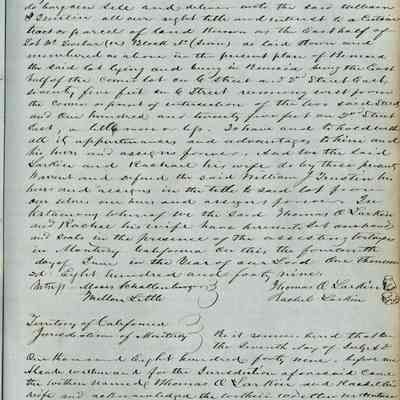 do bargain Sell and deliver unto the said William
J Truslin all our right title and interest to a certain
tract or parcel of land known as the East half of
Lot No Twelve (12) Block No (Two) as laid down and
numbered as above in the present plan of
the said lot lying and being in being the East
half of the Corner lot on C Street and 2d Street Each
seventy five feet on C Street running west from
the Corner or point of intersection of the two said Streets
and One hundred and twenty five feet on 2d Street
East, a little more or less. To have and to hold with
all its appurtenances and advantages to him and
his heirs and assigns forever. And we the said
Larkin and Rachael his wife do by these presents
Warrant and defend the said William J Truslin his
heirs and assigns in the title to said lot from
our selves our heirs and assigns forever. In
testimony whereof we the said Thomas O Larkin
and Rachel his wife have hereunto Set our hands
and seals in the presence of the attesting
in Monterey California do this the fourteenth
day of June in the Year of our Lord One thousand
Eight hundred and forty nine.
Witness Moses Schallenberger Thomas O Larkin
Milton Little Rachel Larkin
Territory of California
Jurisdiction of Monterey Be it remembered that on
the Seventh day of July A D
One thousand Eight hundred forty nine before me
Alcalde within and for the Jurisdiction aforesaid Came
the within named Thomas O Larkin and Rachel his
wife and acknowledged the within